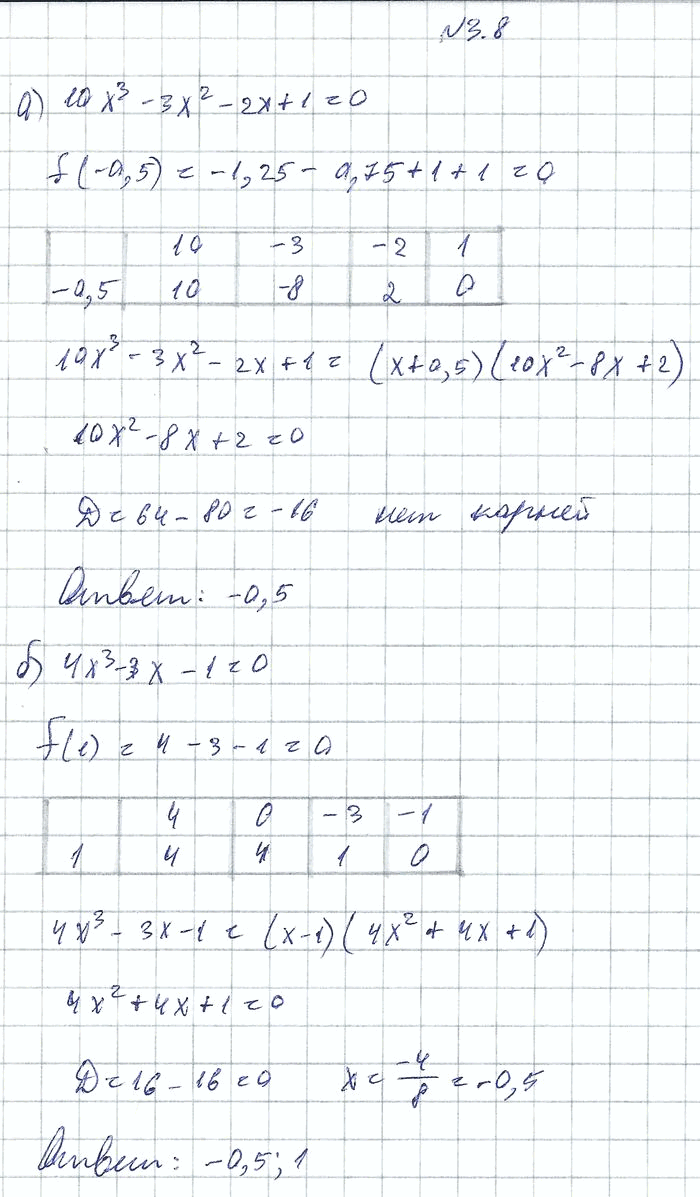 №3.8
а) 10x³ - 3x² - 2x + 1 = 0
f(-0,5) = -1,25 - 0,75 + 1 + 1 = 0
10 -3 -2 1
-0,5 10 -8 2 0
10x³ - 3x² - 2x + 1 = (x+0,5)(10x² - 8x + 2)
10x² - 8x + 2 = 0
D = 64 - 80 = -16 нет корней
Ответ: -0,5
б) 4x³ - 3x - 1 = 0
f(1) = 4 - 3 - 1 = 0
4 0 -3 -1
1 4 4 1 0
4x³ - 3x - 1 = (x-1)(4x² + 4x + 1)
4x² + 4x + 1 = 0
D = 16 - 16 = 0 x = -4/8 = -0,5
Ответ: -0,5; 1